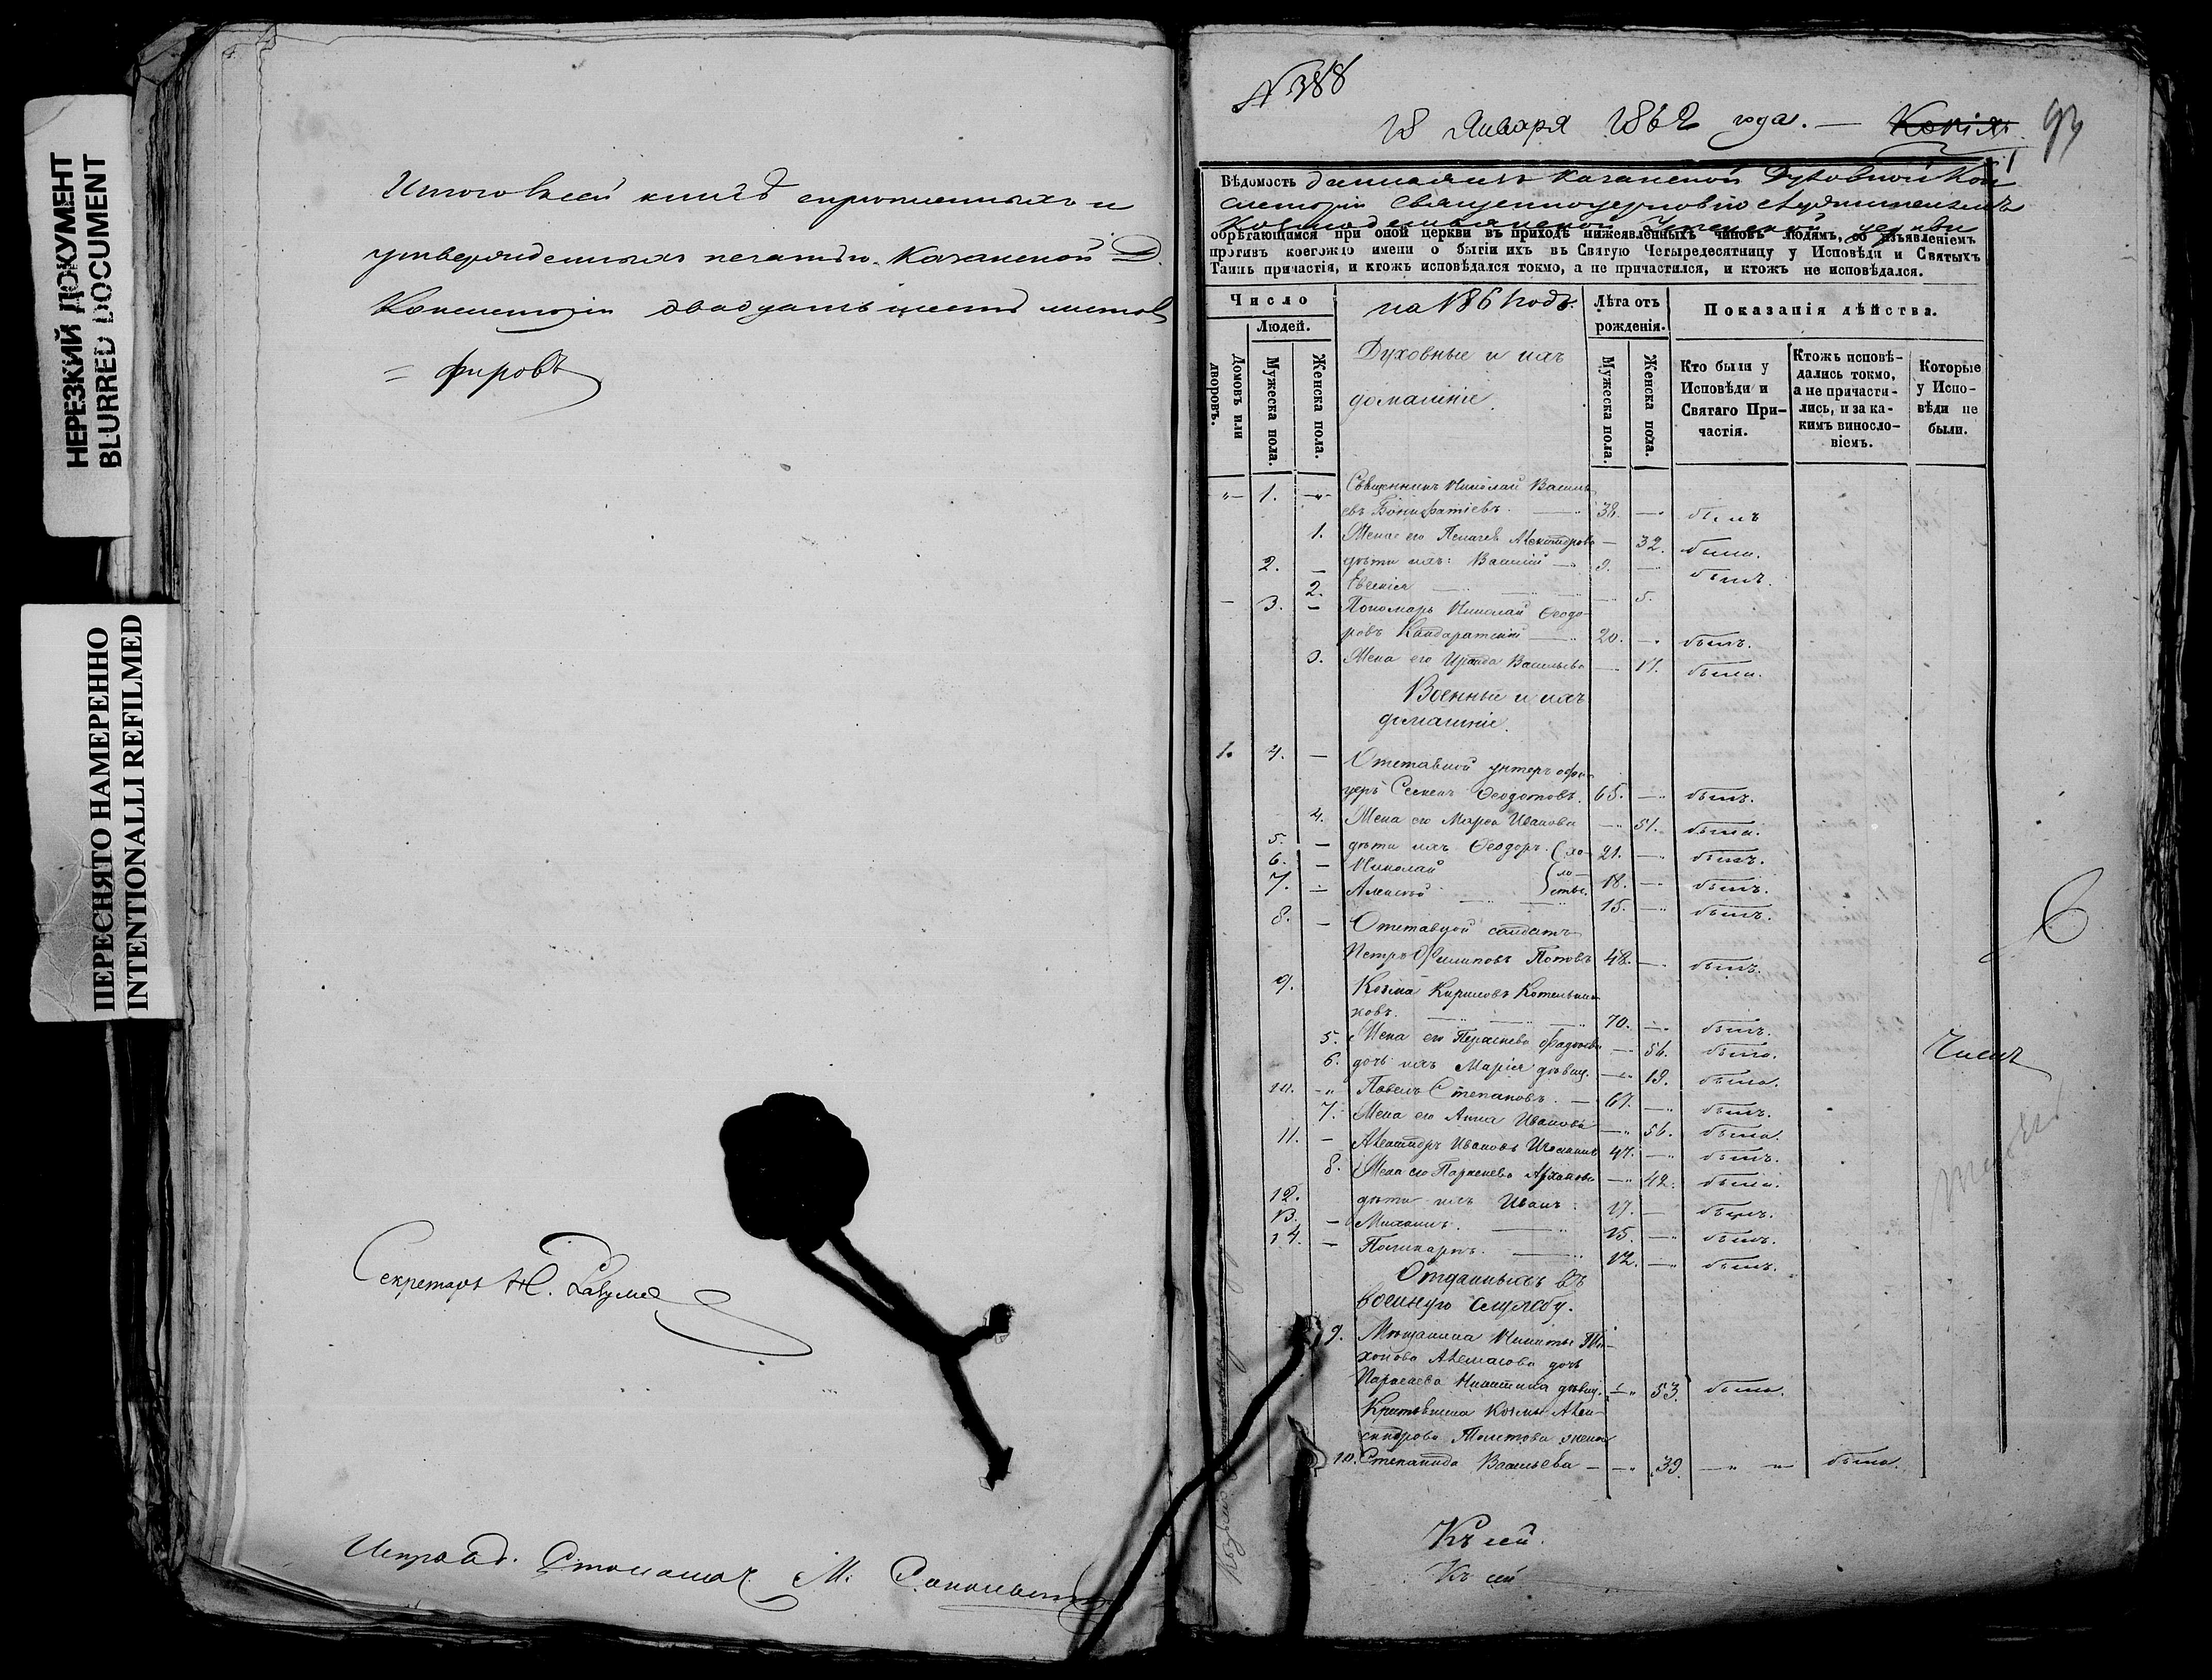 НЕРЕЗКИЙ ДОКУМЕНТ
BLURRED DOCUMENT
ПЕРЕСНЯТО НАМЕРЕННО
INTENTIONALLI REFILMED
Итого въ сей книгѣ скрѣпленныхъ и
утвержденныхъ печатью Казанской Д.
Консисторіи двадцать шесть листов
Секретарь Н.
Исправ. д. Столонач. М.
N 388
18 Января 1862 года. — Копія
93
Вѣдомость Казанской Духовной Кон
систоріи Священноцерковно служителей
Козмодемьянской церкви
обрѣтающимся при оной церкви въ приходѣ нижеявленныхъ чиновъ людямъ, со изъявленіемъ
противъ коегождо имени о бытіи ихъ въ Святую Четыредесятницу у Исповѣди и Святыхъ
Таинъ причастія, и ктожъ исповѣдался токмо, а не причастился, и ктожъ не исповѣдался.
Число
Людей.
Домовъ или дворовъ.
Мужеска пола.
Женска пола.
на 1861 годъ.
Духовные и ихъ
домашніе.
Лѣта отъ рожденія.
Мужеска пола.
Женска пола.
Показанія дѣйства.
Кто были у Исповѣди и Святаго Причастія.
Ктожъ исповѣдались токмо, а не причастились, и за какимъ винословіемъ.
Которые у Исповѣди не были.
1. Священникъ Николай Василь
евъ Бонифатіевъ. 38. былъ
1. Жена его Пелагея Александрова 32. была.
2. дѣти ихъ: Василій 9. былъ.
2. Евгенія 5.
3. Пономарь Николай Ѳеодо-
ровъ Кандаратскій 20. былъ.
3. Жена его Ираида Васильева 17. была.
Военные и ихъ
домашніе.
1. 4. Отставной унтеръ офи-
церъ Семенъ Ѳеодотовъ. 65. былъ.
4. Жена его Марѳа Иванова 51. была.
5. дѣти ихъ Ѳеодоръ (хо- 21. былъ.
6. Николай ло- 18. былъ.
7. Алексѣй стые. 15. былъ.
8. Отставной солдатъ
Петръ Филиповъ Поповъ 48. былъ.
9. Козма Кириловъ Котельни-
ковъ. 70. былъ.
5. Жена его Параскева Фадѣева 56. была.
6. дочь ихъ Марія дѣвиц. 19. была.
10. Павелъ Степановъ. 67. былъ.
7. Жена его Анна Иванова 56. была.
11. Александръ Ивановъ 47. былъ.
8. Жена его Параскева 42. была.
12. дѣти ихъ Иванъ: 17. былъ.
13. Михаилъ. 15. былъ.
14. Поликарпъ. 12. былъ.
Отданныхъ въ
военную службу.
9. Мѣщанина Никиты Ти-
хонова дочь
Параскева Никитина дѣвиц. 53. была.
Козмы Алек-
сандрова жена
10. Степанида Васильева 39. была.
Къ сей.
Къ сей